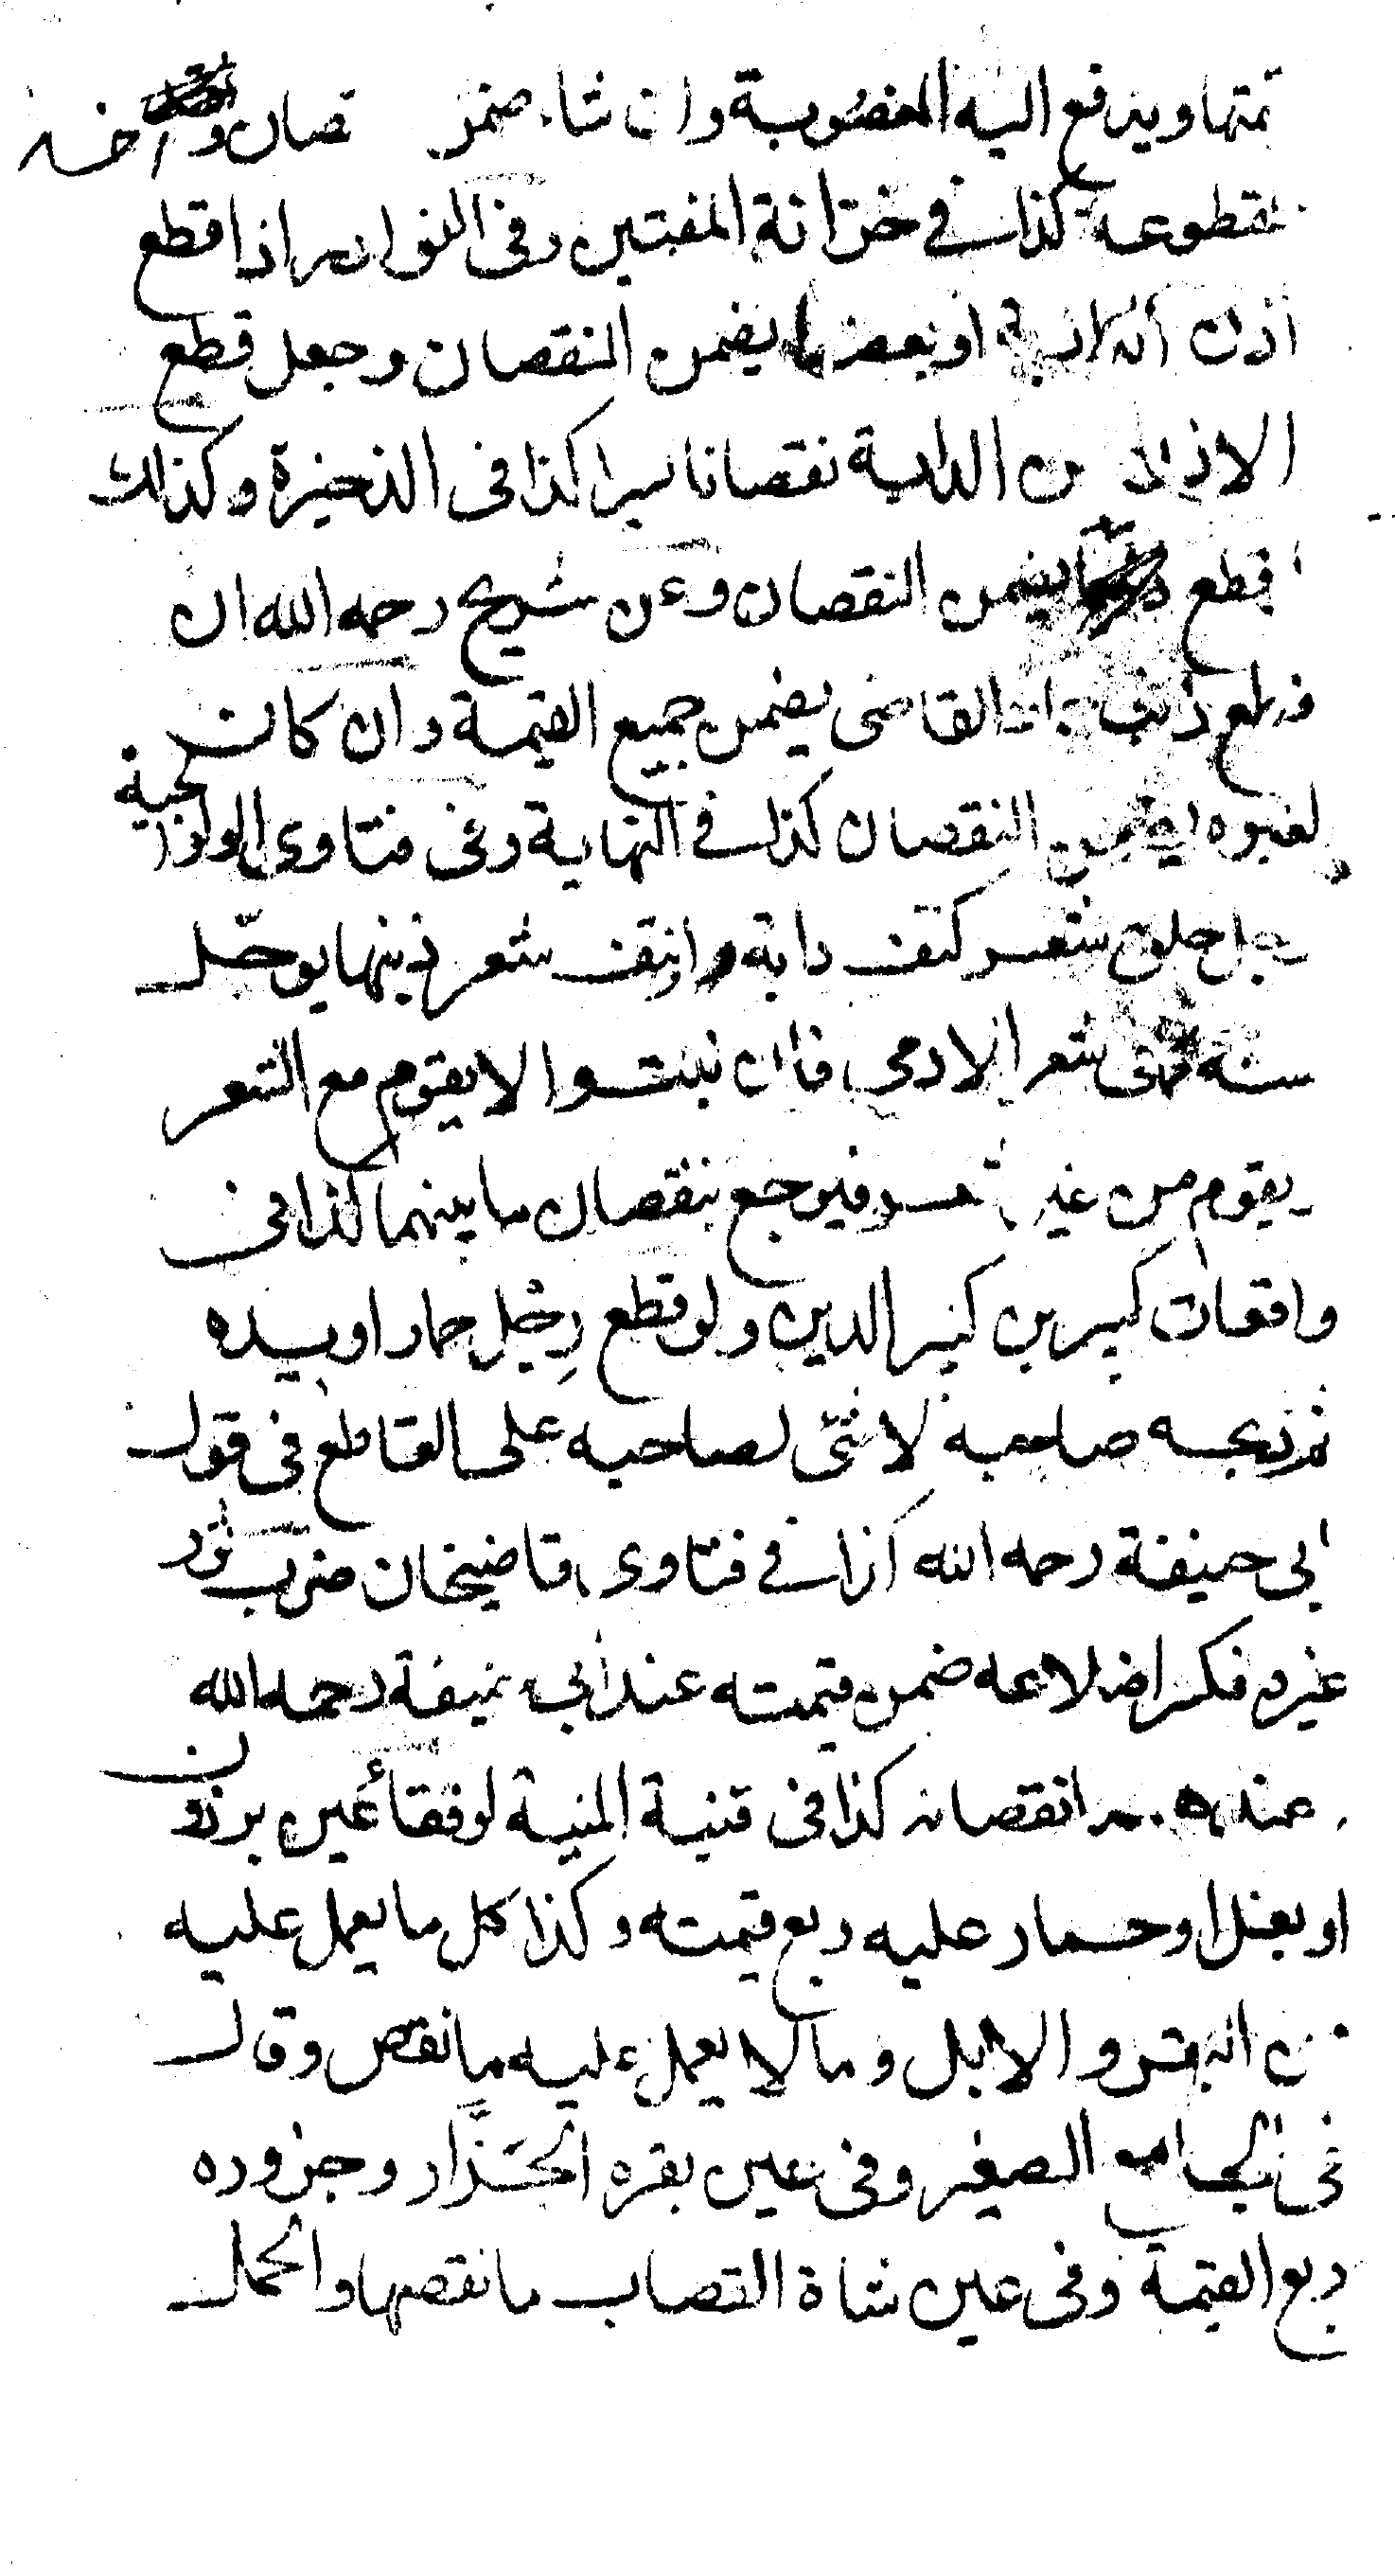 قيمتها ويدفع اليه المغصوبة وان شاء ضمن النقصان واخذ
المقطوعة كذا في خزانة المفتيين وفى النوادر اذا قطع
اذن الدابة او بعضها يضمن النقصان وجعل قطع
الاذن من الدابة نقصانا يسيرا كذا فى الذخيرة وكذلك
قطع يضمن النقصان وعن شريح رحمه الله ان
قطع ذنب حمار القاضى يضمن جميع القيمة وان كان
لغيره يضمن النقصان كذا في النهاية وفى فتاوى الولوالجية
رجل حلق شعر كتف دابة وانتف شعر ذنبها يوجل
سنة شعر الادمى فان نبت والا يقوم مع الشعر
ويقوم من غير شعر فيرجع بنقصان ما بينهما كذا فى
واقعات كبير بن كبير الدين ولو قطع رجل حمار او يده
ثم ذبحه صاحبه لا شئ لصاحبه على القاطع فى قول
ابى حنيفة رحمه الله كذا في فتاوى قاضيخان ضرب ثور
غيره فكسر اضلاعه ضمن قيمته عند ابى حنيفة رحمه الله
وعندهما نقصانه كذا فى قنية المنية لو فقأ عين برذون
او بغل او حمار عليه ربع قيمته وكذا كل ما يعمل عليه
من البقر والابل وما لا يعمل عليه ما نقص وقال
فى الجامع الصغير وفى عين بقره الجزَّار وجزوره
ربع القيمة وفى عين شاة القصاب ما نقصها والحمل